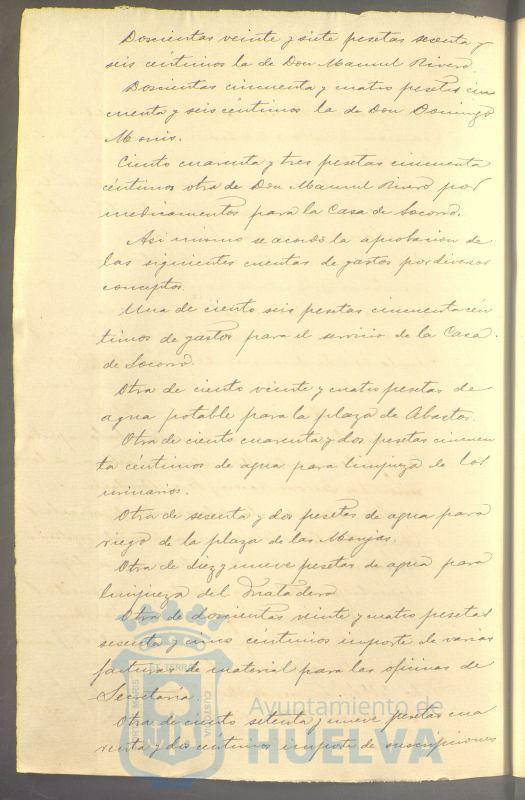 Doscientas veinte y siete pesetas sesenta y
seis céntimos la de Don Manuel Rivero.
Doscientas cincuenta y cuatro pesetas cin
cuenta y seis céntimos la de Don Domingo
Monis.
Ciento cuarenta y tres pesetas cincuenta
céntimos otra de Don Manuel Rivero por
medicamentos para la Casa de Socorro.
Asi mismo se acordó la aprobacion de
las siguientes cuentas de gastos por diversos
conceptos.
Una de ciento seis pesetas cincuenta cén
timos de gastos para el servicio de la Casa
de Socorro.
Otra de ciento veinte y cuatro pesetas de
agua potable para la plaza de Abastos.
Otra de ciento cuarenta y dos pesetas cincuen
ta céntimos de agua para limpieza de los
urinarios.
Otra de sesenta y dos pesetas de agua para
riego de la plaza de las Monjas.
Otra de diez y nueve pesetas de agua para
limpieza del Matadero
Otra de doscientas veinte y cuatro pesetas
sesenta y cinco centimos importe de varias
facturas de material para las oficinas de
Secretaría.
Otra de ciento setenta y nueve pesetas cua
renta y dos centimos importe de suscripciones
Ayuntamiento de
HUELVA